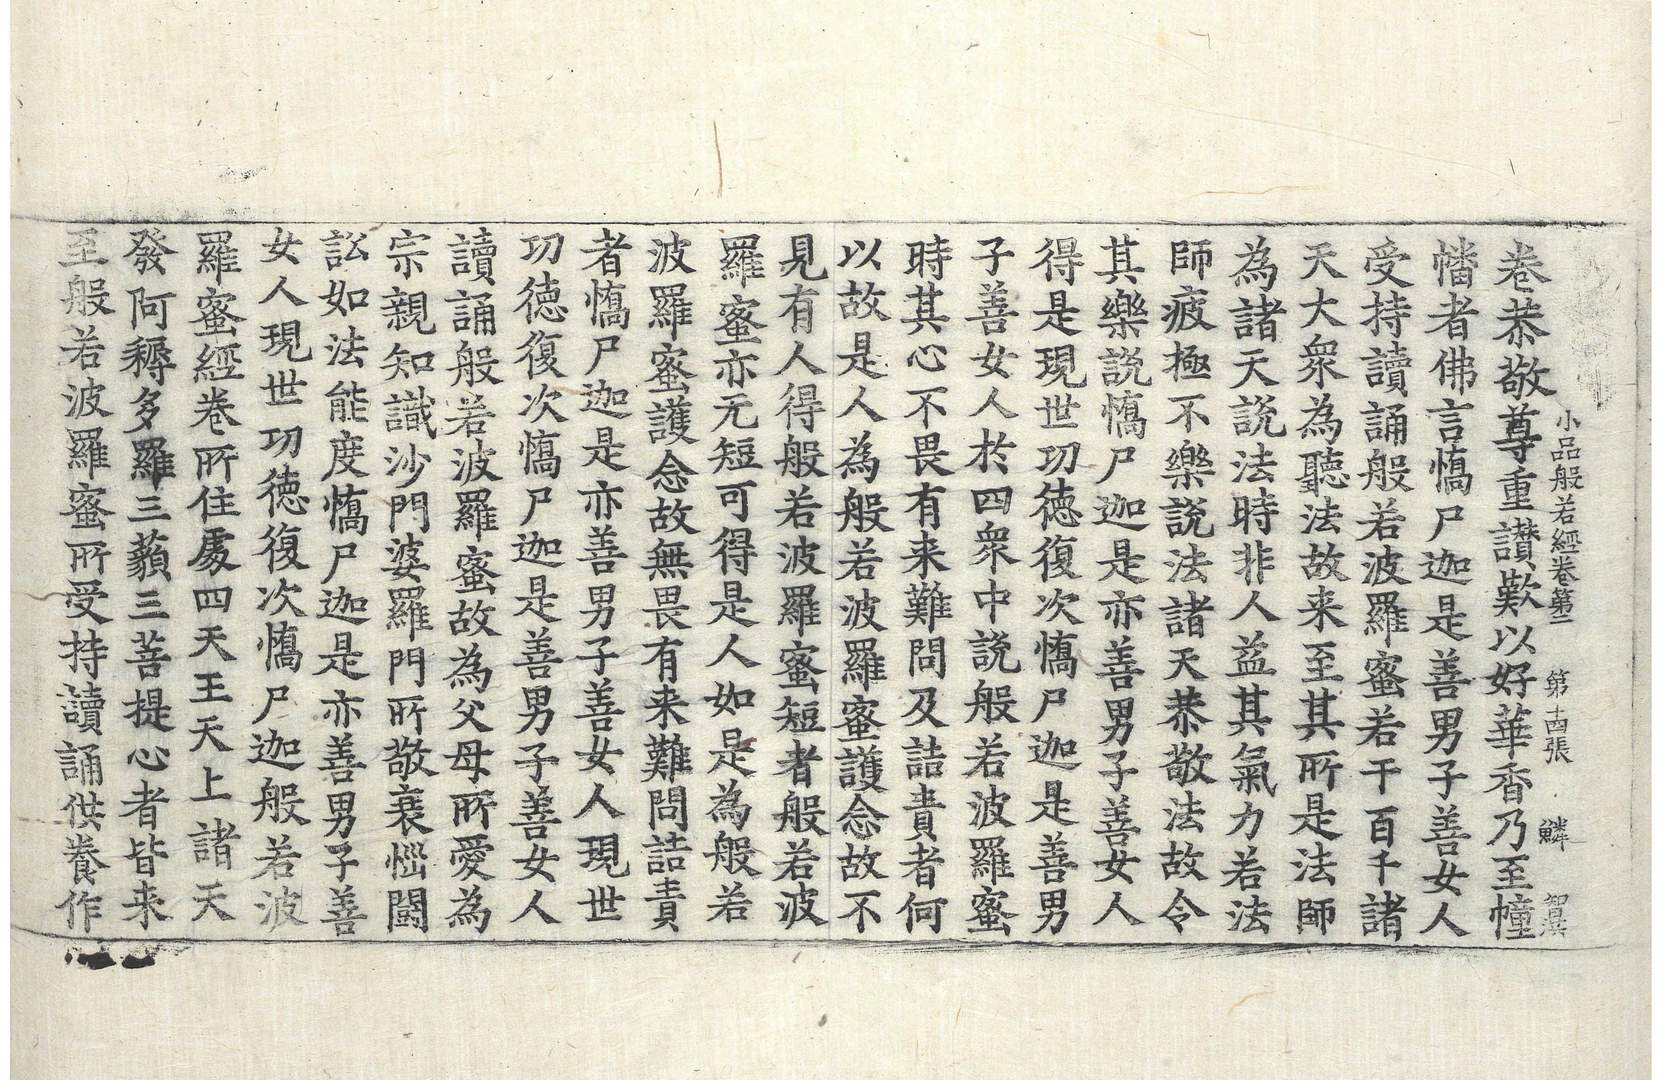 小品般若經卷第二　第十四張　鱗　智淇
卷恭敬尊重讃歎以好華香乃至幢
幡者佛言憍尸迦是善男子善女人
受持讀誦般若波羅蜜若干百千諸
天大衆為聽法故来至其所是法師
為諸天說法時非人益其氣力若法
師疲極不樂說法諸天恭敬法故令
其樂說憍尸迦是亦善男子善女人
得是現世功德復次憍尸迦是善男
子善女人於四衆中說般若波羅蜜
時其心不畏有来難問及詰責者何
以故是人為般若波羅蜜護念故不
見有人得般若波羅蜜短者般若波
羅蜜亦无短可得是人如是為般若
波羅蜜護念故無畏有来難問詰責
者憍尸迦是亦善男子善女人現世
功德復次憍尸迦是善男子善女人
讀誦般若波羅蜜故為父母所愛為
宗親知識沙門婆羅門所敬衰惱鬪
訟如法能度憍尸迦是亦善男子善
女人現世功德復次憍尸迦般若波
羅蜜經卷所住處四天王天上諸天
發阿耨多羅三藐三菩提心者皆来
至般若波羅蜜所受持讀誦供養作